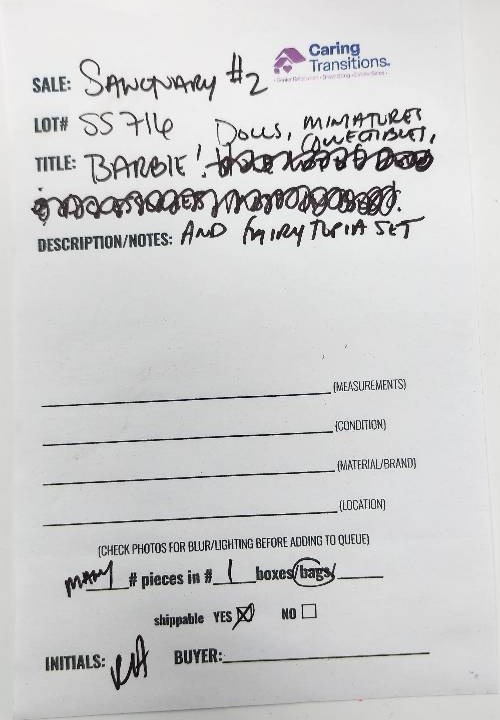 Caring
Transitions
SALE: SANCTUARY #2
LOT# SS 716
DOLLS, MINIATURES
COLLECTIBLES,
TITLE: BARBIE!
DESCRIPTION/NOTES: AND FAIRYTOPIA SET
(MEASUREMENTS)
(CONDITION)
(MATERIAL/BRAND)
(LOCATION)
(CHECK PHOTOS FOR BLUR/LIGHTING BEFORE ADDING TO QUEUE)
MANY # pieces in # 1 boxes/bags/
shippable YES NO
INITIALS: BUYER: